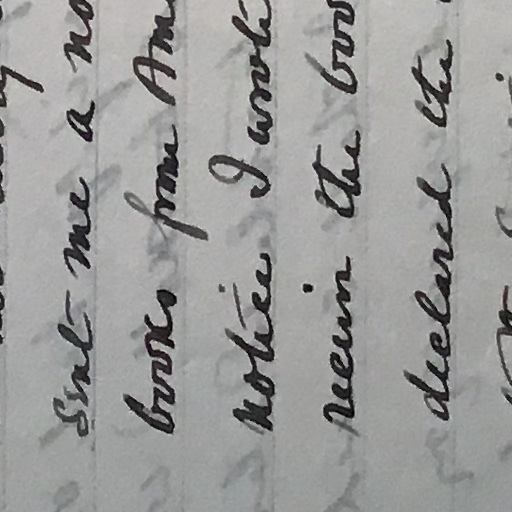 sent me a no
books from Am
notice I wrote
receive the boo
declared the